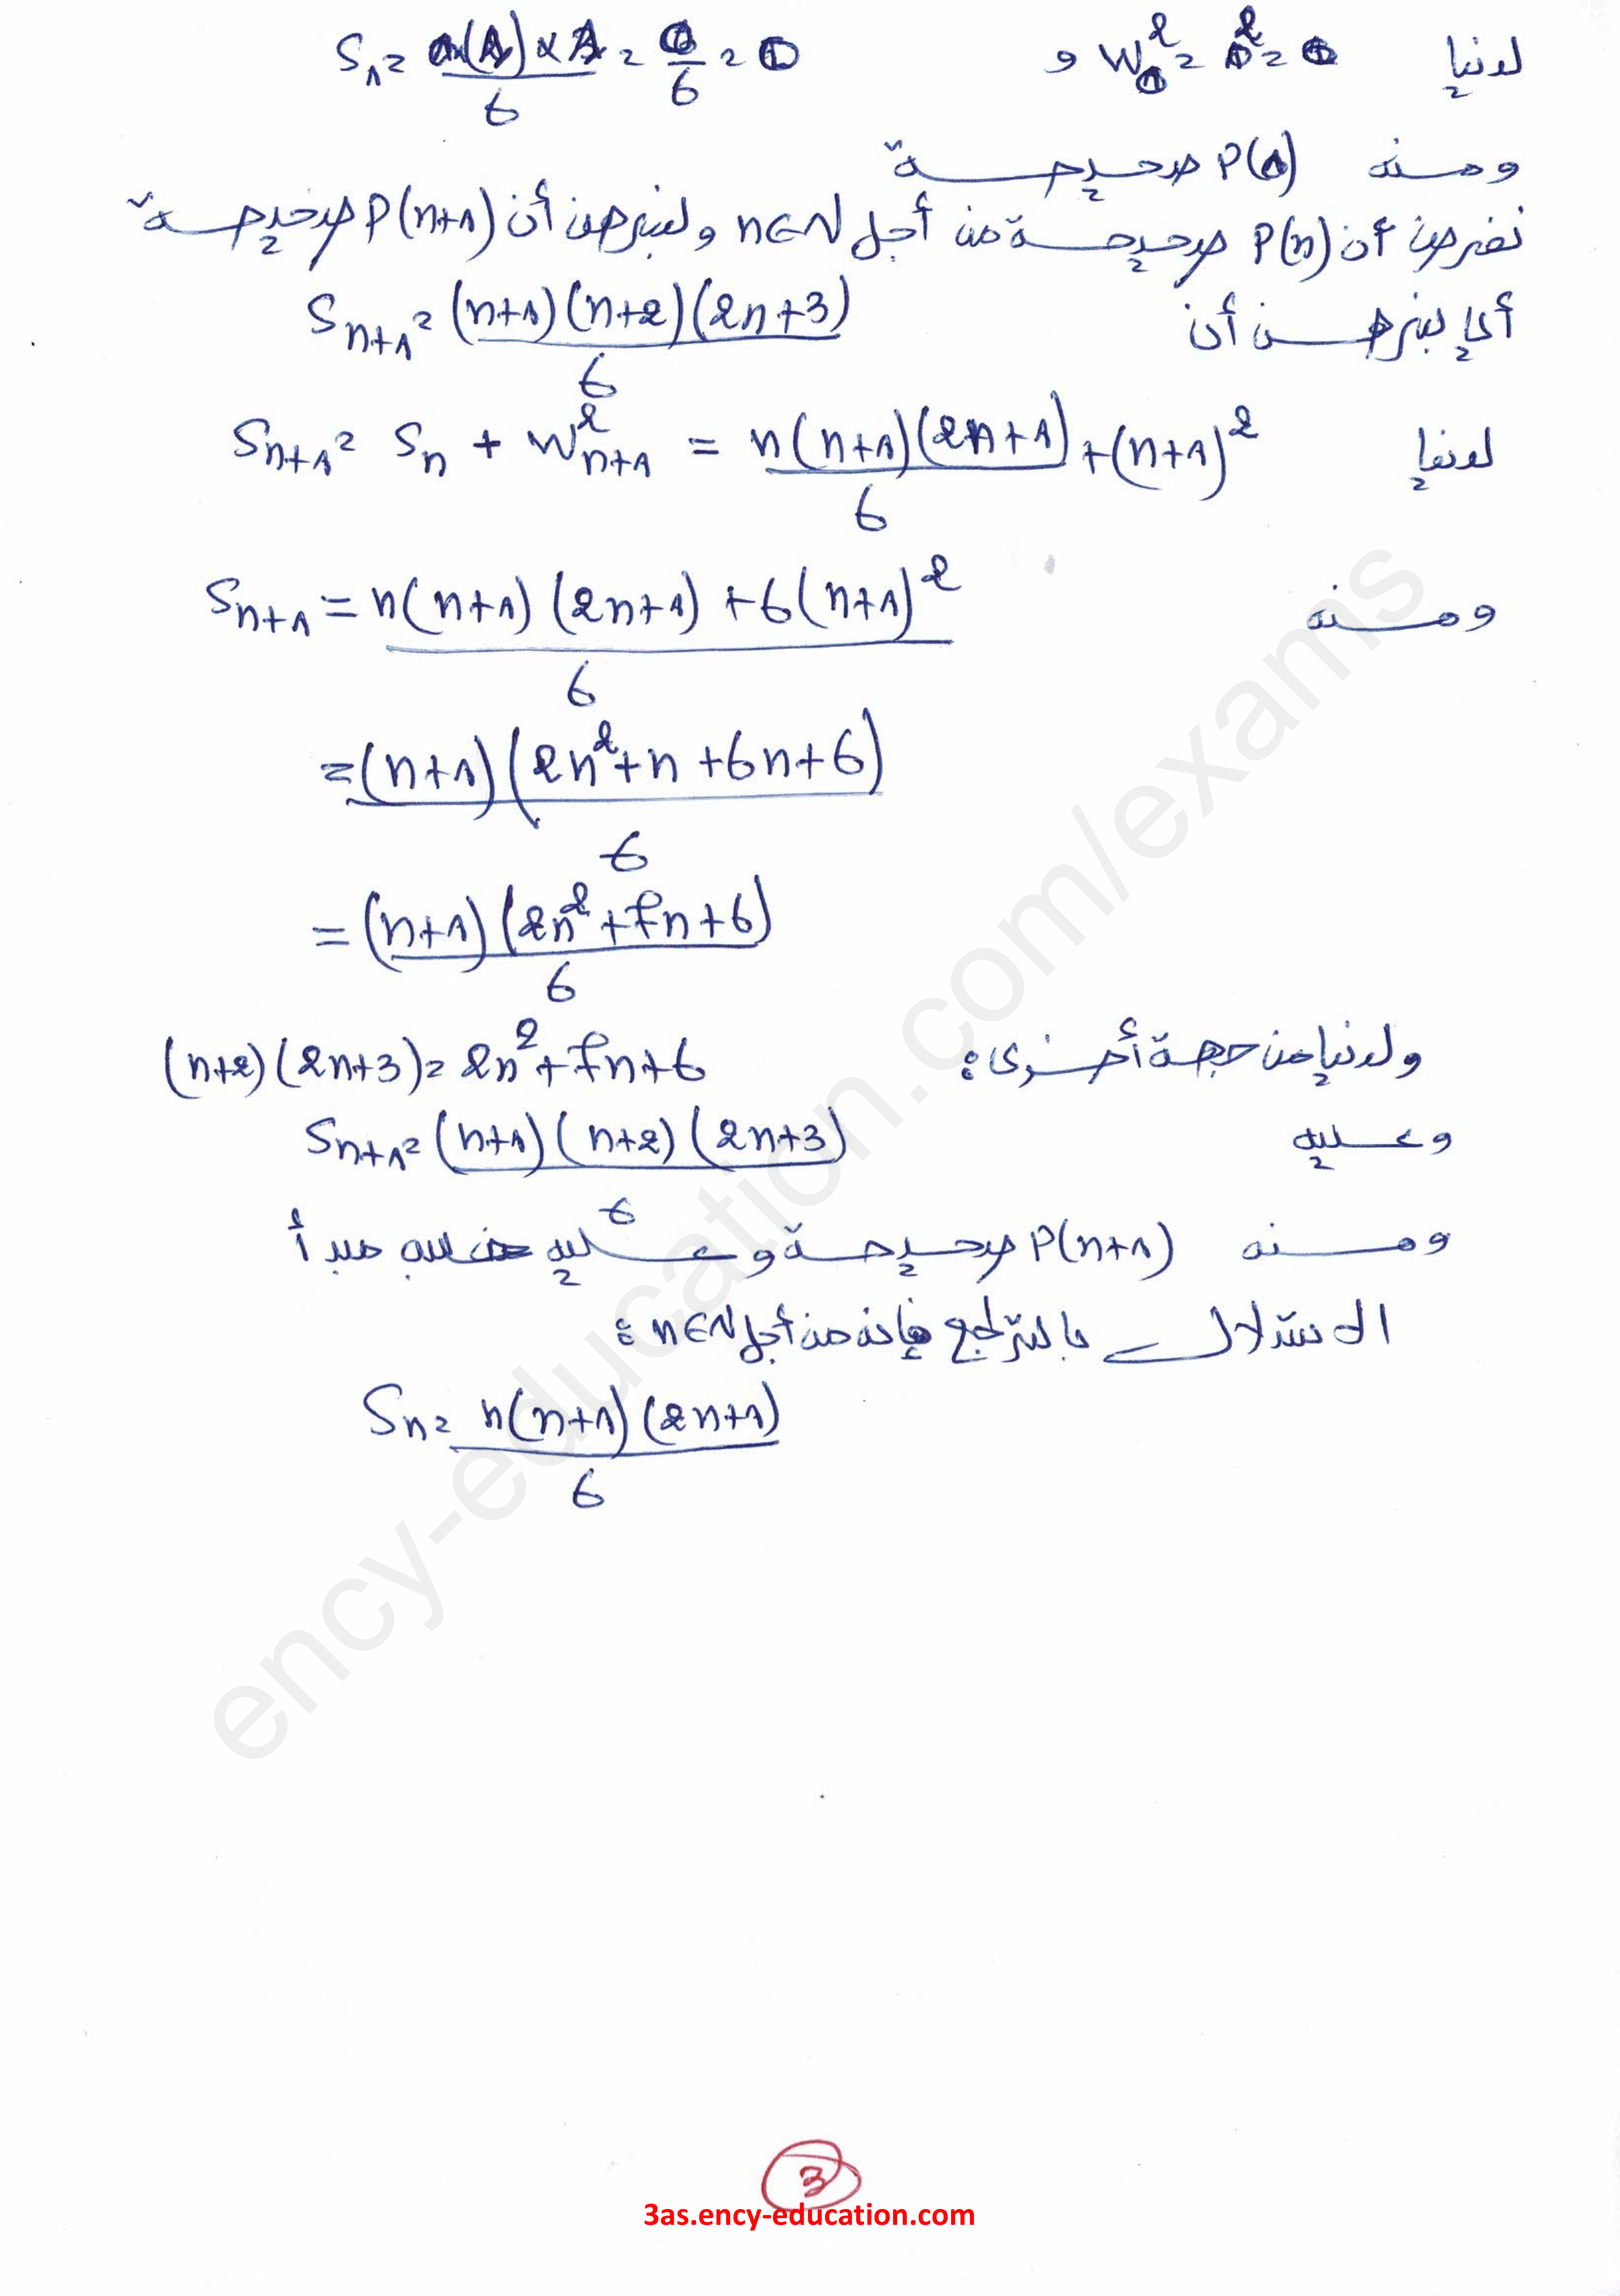 لدينا W₀² = 0² = 0 و S₁ = / 6 = 0/6 = 0
ومنه P(0) صحيحة
نفرض أن P(n) صحيحة من أجل n∈N ولنبرهن أن P(n+1) صحيحة
أي لنبرهن أن Sn+1 = (n+1)(n+2)(2n+3) / 6
لدينا Sn+1 = Sn + W²n+1 = n(n+1)(2n+1) / 6 + (n+1)²
ومنه Sn+1 = n(n+1)(2n+1) + 6(n+1)² / 6
= (n+1)(2n²+n+6n+6) / 6
= (n+1)(2n²+7n+6) / 6
ولدينا من جهة أخرى: (n+2)(2n+3) = 2n²+7n+6
وعليه Sn+1 = (n+1)(n+2)(2n+3) / 6
ومنه P(n+1) صحيحة وعليه حسب مبدأ
الاستدلال بالتراجع فإنه من أجل n∈N :
Sn = n(n+1)(2n+1) / 6
ency-education.com/exams
3
3as.ency-education.com